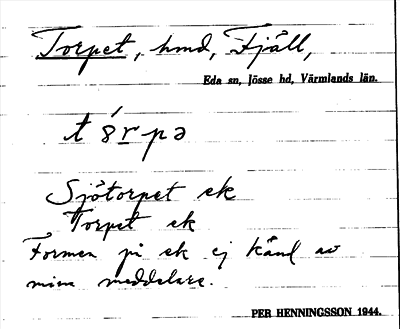 Torpet, hmd, Fjäll,
Eda sn, Jösse hd, Värmlands län.
t 8́ r p ə
Sjötorpet ek
Torpet ek
Formen på ek ej känd av
mina meddelare.
PER HENNINGSSON 1944.